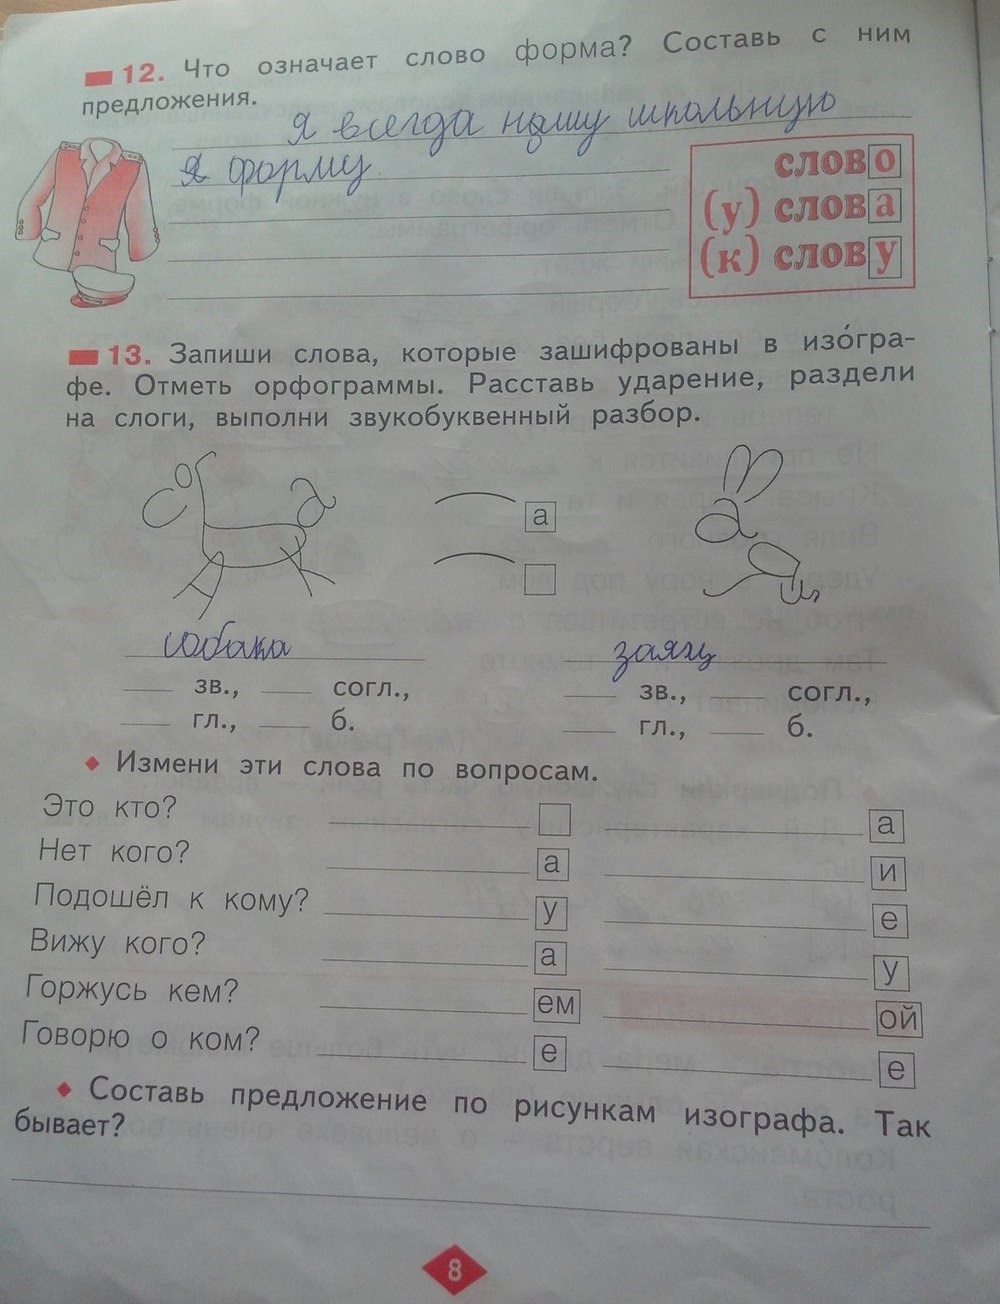 12. Что означает слово форма? Составь с ним
предложения.
я всегда ношу школьную
я форму
слово
(у) слова
(к) слову
13. Запиши слова, которые зашифрованы в изо́гра-
фе. Отметь орфограммы. Расставь ударение, раздели
на слоги, выполни звукобуквенный разбор.
а
собака заяц
___ зв., ___ согл., ___ зв., ___ согл.,
___ гл., ___ б. ___ гл., ___ б.
Измени эти слова по вопросам.
Это кто? а
Нет кого? а и
Подошёл к кому? у е
Вижу кого? а у
Горжусь кем? ем ой
Говорю о ком? е е
Составь предложение по рисункам изографа. Так
бывает?
8